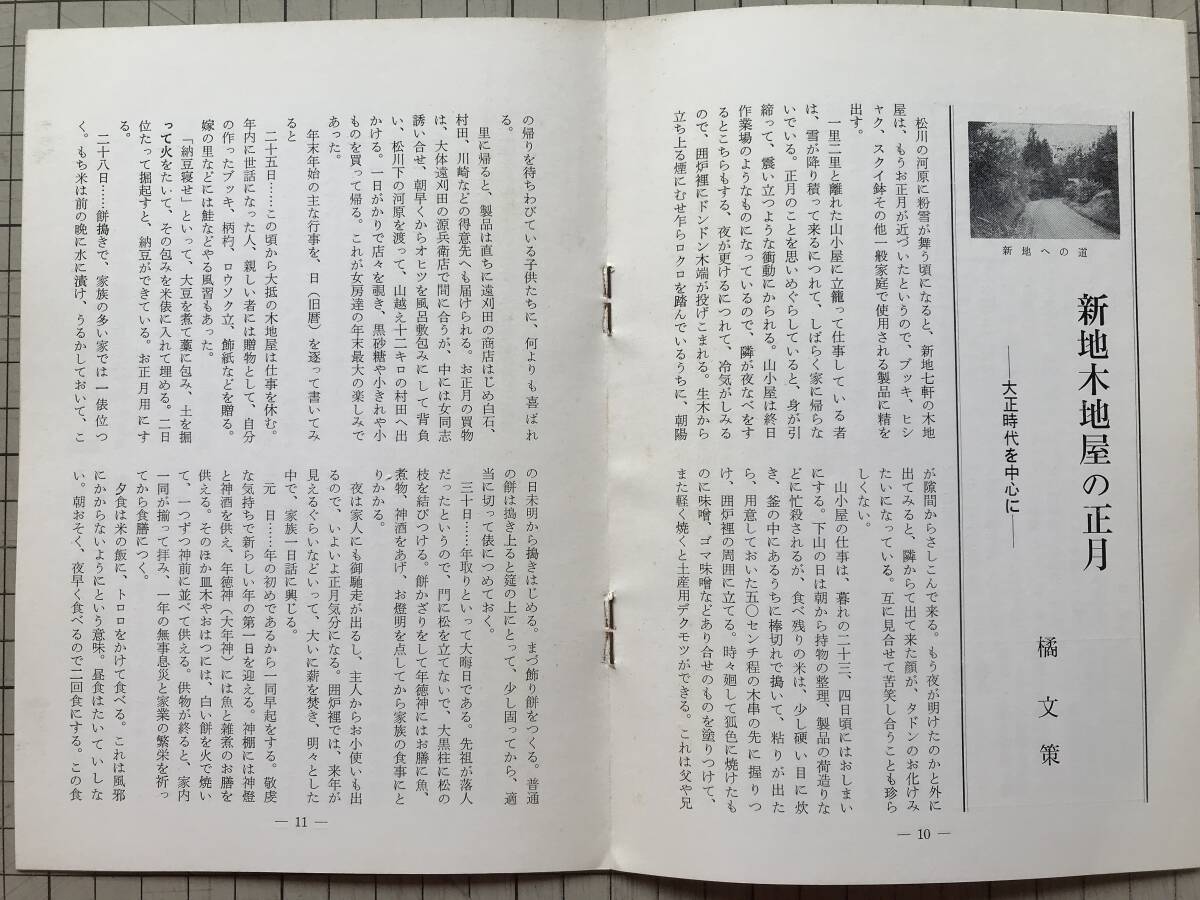 新地木地屋の正月
――大正時代を中心に――
橘文策
新地への道
松川の河原に粉雪が舞う頃になると、新地七軒の木地
屋は、もうお正月が近づいたというので、ブッキ、ヒシ
ャク、スクイ鉢その他一般家庭で使用される製品に精を
出す。
一里二里と離れた山小屋に立籠って仕事している者
は、雪が降り積って来るにつれて、しばらく家に帰らな
いでいる。正月のことを思いめぐらしていると、身が引
締って、震い立つような衝動にかられる。山小屋は終日
作業場のようなものになっているので、隣が夜なべをす
るとこちらもする、夜が更けるにつれて、冷気がしみる
ので、囲炉裡にドンドン木端が投げこまれる。生木から
立ち上る煙にむせ乍らロクロを踏んでいるうちに、朝陽
が隙間からさしこんで来る。もう夜が明けたのかと外に
出てみると、隣から出て来た顔が、タドンのお化けみ
たいになっている。互に見合せて苦笑し合うことも珍ら
しくない。
山小屋の仕事は、暮れの二十三、四日頃にはおしまい
にする。下山の日は朝から持物の整理、製品の荷造りな
どに忙殺されるが、食べ残りの米は、少し硬い目に炊
き、釜の中にあるうちに棒切れで搗いて、粘りが出た
ら、用意しておいた五〇センチ程の木串の先に握りつ
け、囲炉裡の周囲に立てる。時々廻して狐色に焼けたも
のに味噌、ゴマ味噌などあり合せのものを塗りつけて、
また軽く焼くと土産用デクモツができる。これは父や兄
― 10 ―
の帰りを待ちわびている子供たちに、何よりも喜ばれ
る。
里に帰ると、製品は直ちに遠刈田の商店はじめ白石、
村田、川崎などの得意先へも届けられる。お正月の買物
は、大体遠刈田の源兵衛店で間に合うが、中には女同志
誘い合せ、朝早くからオヒツを風呂敷包みにして背負
い、松川下の河原を渡って、山越え十二キロの村田へ出
かける。一日がかりで店々を覗き、黒砂糖や小きれや小
ものを買って帰る。これが女房達の年末最大の楽しみで
あった。
年末年始の主な行事を、日（旧暦）を逐って書いてみ
ると
二十五日……この頃から大抵の木地屋は仕事を休む。
年内に世話になった人、親しい者には贈物として、自分
の作ったブッキ、柄杓、ロウソク立、飾紙などを贈る。
嫁の里などには鮭などやる風習もあった。
「納豆寝せ」といって、大豆を煮て藁に包み、土を掘
って火をたいて、その包みを米俵に入れて埋める。二日
位たって掘起すと、納豆ができている。お正月用にす
る。
二十八日……餅搗きで、家族の多い家では一俵位つ
く。もち米は前の晩に水に漬け、うるかしておいて、こ
の日未明から搗きはじめる。まづ飾り餅をつくる。普通
の餅は搗き上ると筵の上にとって、少し固ってから、適
当に切って俵につめておく。
三十日……年取りといって大晦日である。先祖が落人
だったというので、門に松を立てないで、大黒柱に松の
枝を結びつける。餅かざりをして年徳神にはお膳に魚、
煮物、神酒をあげ、お燈明を点してから家族の食事にと
りかかる。
夜は家人にも御馳走が出るし、主人からお小使いも出
るので、いよいよ正月気分になる。囲炉裡では、来年が
見えるぐらいなどいって、大いに薪を焚き、明々とした
中で、家族一日話に興じる。
元　日……年の初めであるから一同早起をする。敬虔
な気持ちで新らしい年の第一日を迎える。神棚には神燈
と神酒を供え、年徳神（大年神）には魚と雑煮のお膳を
供える。そのほか皿木やおはつには、白い餅を火で焼い
て、一つずつ神前に並べて供える。供物が終ると、家内
一同が揃って拝み、一年の無事息災と家業の繁栄を祈っ
てから食膳につく。
夕食は米の飯に、トロロをかけて食べる。これは風邪
にかからないようにという意味。昼食はたいていしな
い。朝おそく、夜早く食べるので二回食にする。この食
― 11 ―